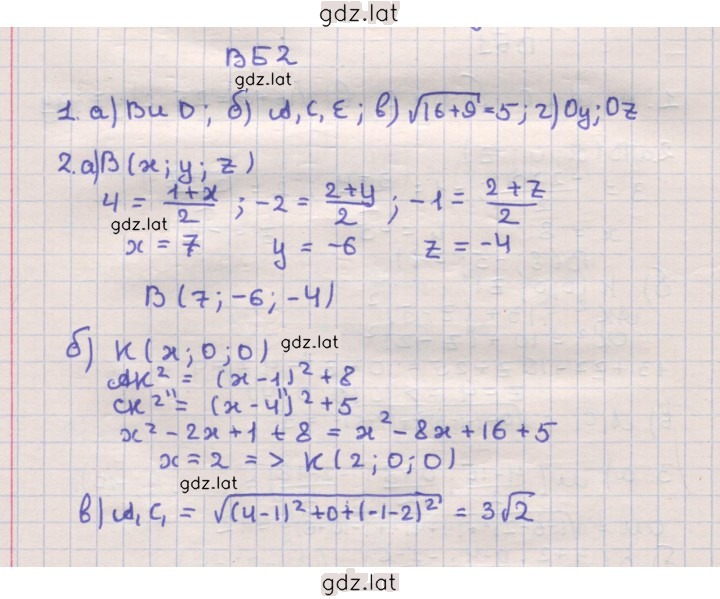 gdz.lat
В Б 2
gdz.lat
1. а) В и D; б) A, C, E; в) √(16+9) = 5; г) Oy; Oz
2. а) B (x; y; z)
4 = (1+x)/2 ; -2 = (2+y)/2 ; -1 = (2+z)/2
gdz.lat
x = 7 y = -6 z = -4
B (7; -6; -4)
б) K (x; 0; 0) gdz.lat
AK² = (x-1)² + 8
CK² = (x-4)² + 5
x² - 2x + 1 + 8 = x² - 8x + 16 + 5
x = 2 => K (2; 0; 0)
gdz.lat
в) A₁C₁ = √((4-1)² + 0 + (-1-2)²) = 3√2
gdz.lat